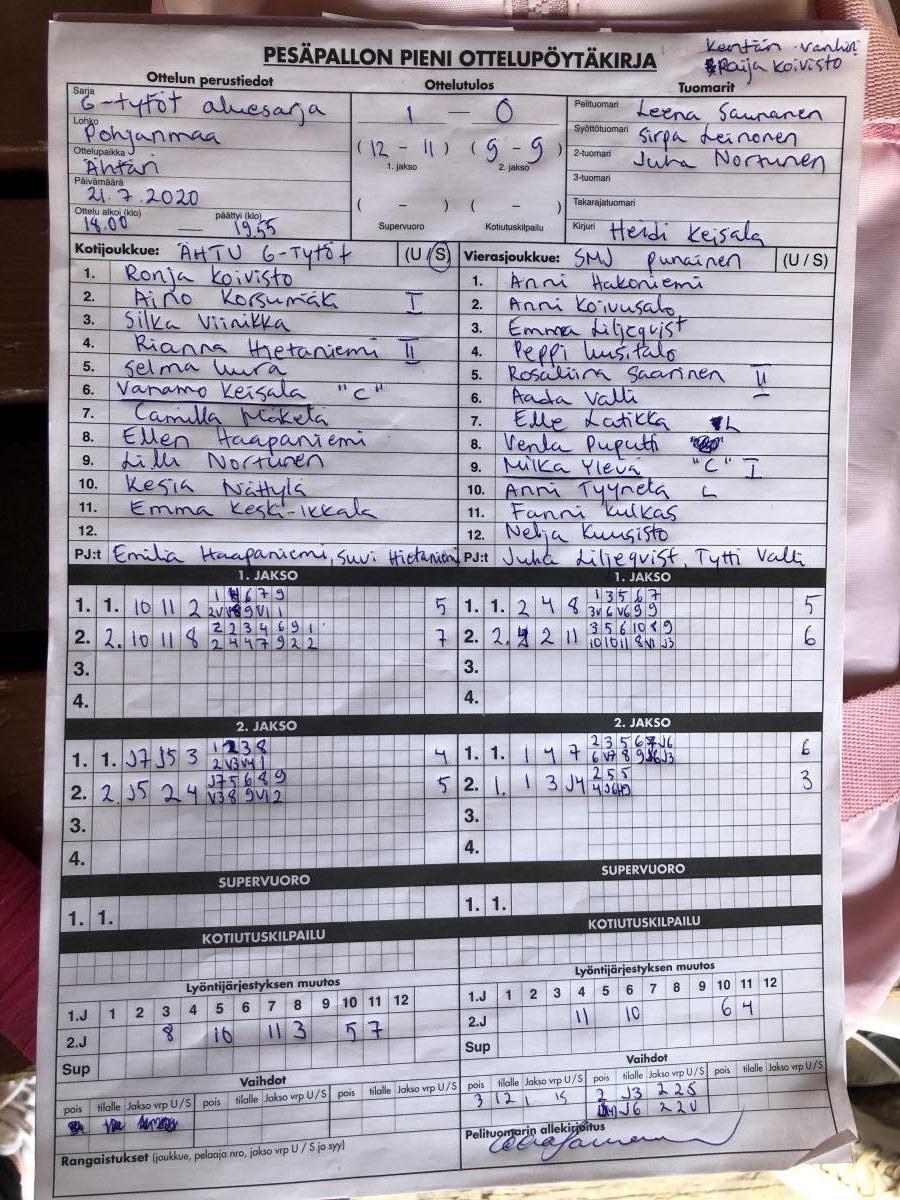 Kentän vanhin
Raija Koivisto
PESÄPALLON PIENI OTTELUPÖYTÄKIRJA
Ottelun perustiedot
Ottelutulos
Tuomarit
Sarja
G-tytöt aluesarja
Lohko
Pohjanmaa
Ottelupaikka
Ähtäri
Päivämäärä
21.7.2020
Ottelu alkoi (klo) päättyi (klo)
18.00 — 19.55
1 — 0
(12 - 11) (9 - 9)
1. jakso 2. jakso
( - ) ( - )
Supervuoro Kotiutuskilpailu
Pelituomari Leena Saunanen
Syöttötuomari Sirpa Leinonen
2-tuomari Juha Nortunen
3-tuomari
Takarajatuomari
Kirjuri Heidi Keisala
Kotijoukkue: ÄHTU G-Tytöt (U / S)
1. Ronja Koivisto
2. Aino Korsumäki I
3. Silka Viinikka
4. Rianna Hietaniemi II
5. Selma Uura
6. Vanamo Keisala "C"
7. Camilla Mäkelä
8. Ellen Haapaniemi
9. Lilli Nortunen
10. Kesia Nättylä
11. Emma Keski-Ikkala
12.
PJ:t Emilia Haapaniemi, Suvi Hietaniemi
Vierasjoukkue: SMJ punainen (U / S)
1. Anni Hakoniemi
2. Anni Koivusalo
3. Emma Liljeqvist
4. Peppi Uusitalo
5. Rosaliina Saarinen II
6. Aada Valli
7. Elle Latikka L
8. Venla Puputti
9. Milka Ylevä "C" I
10. Anni Tyynelä L
11. Fanni Kulkas
12. Nelja Kuusisto
PJ:t Juha Liljeqvist, Tytti Valli
1. JAKSO
1. 1. 10 11 2 5
2. 2. 10 11 8 2 2 3 4 6 9 1 7
2 4 4 7 9 2 2
3.
4.
1. JAKSO
1. 1. 2 4 8 1 3 5 6 7 5
3 V6 V6 9 9
2. 2. 2 11 3 5 6 10 8 9 6
10 10 11 8 V1 J3
3.
4.
2. JAKSO
1. 1. J7 J5 3 4
2 V3 V4 1
2. 2. J5 2 4 J7 5 6 8 9 5
V3 8 9 V1 2
3.
4.
2. JAKSO
1. 1. 1 4 7 2 3 5 6 7 J6 6
2. 1. 1 3 J4 2 5 5 3
3.
4.
SUPERVUORO
1. 1.
SUPERVUORO
1. 1.
KOTIUTUSKILPAILU
KOTIUTUSKILPAILU
Lyöntijärjestyksen muutos
1.J 1 2 3 4 5 6 7 8 9 10 11 12
2.J 8 10 11 3 5 7
Sup
Lyöntijärjestyksen muutos
1.J 1 2 3 4 5 6 7 8 9 10 11 12
2.J 11 10 6 4
Sup
Vaihdot
pois tilalle Jakso vrp U / S pois tilalle Jakso vrp U / S pois tilalle Jakso vrp U / S
Rangaistukset (joukkue, pelaaja nro, jakso vrp U / S ja syy)
Vaihdot
pois tilalle Jakso vrp U / S pois tilalle Jakso vrp U / S pois tilalle Jakso vrp U / S
3 12 1 1S 2 J3 2 2S
J6 2 2U
Pelituomarin allekirjoitus